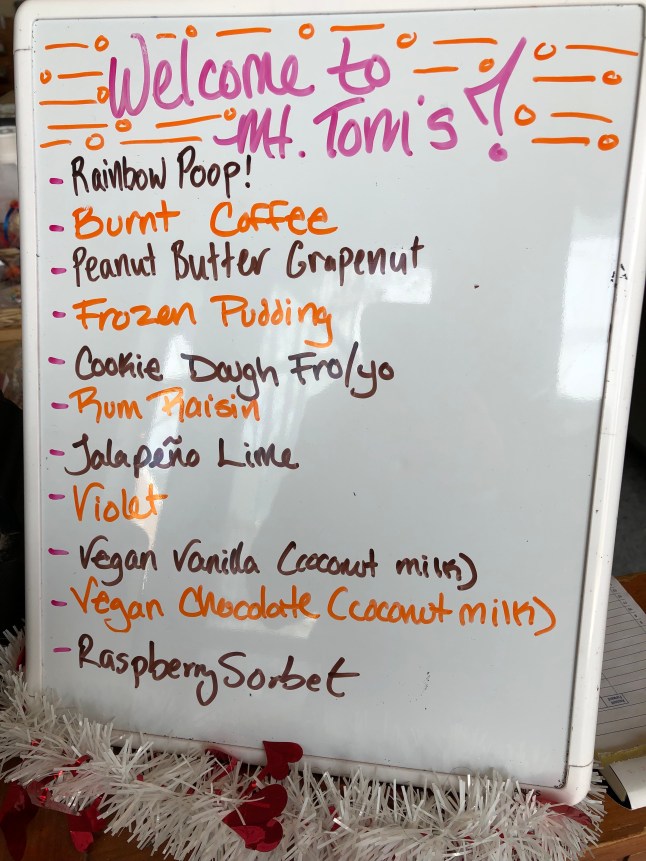 Welcome to
Mt. Tom's!
- Rainbow Poop!
- Burnt Coffee
- Peanut Butter Grapenut
- Frozen Pudding
- Cookie Dough Fro/yo
- Rum Raisin
- Jalapeño Lime
- Violet
- Vegan Vanilla (coconut milk)
- Vegan Chocolate (coconut milk)
- Raspberry Sorbet